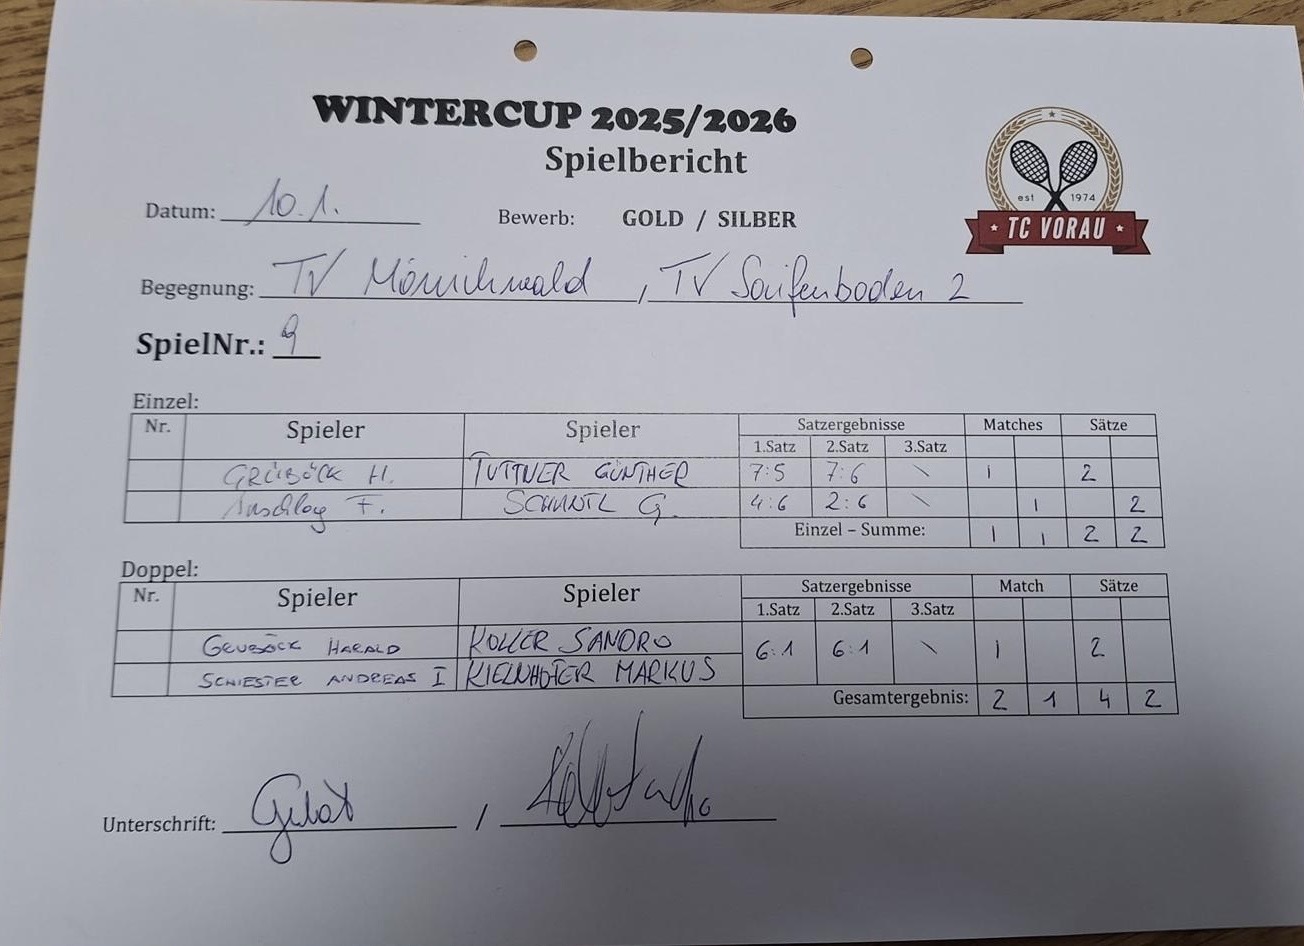 WINTERCUP 2025/2026
Spielbericht
est 1974
TC VORAU
Datum: 10.1. Bewerb: GOLD / SILBER
Begegnung: TV Mönichwald , TV Saifenboden 2
SpielNr.: 9
Einzel:
Nr. Spieler Spieler Satzergebnisse Matches Sätze
1.Satz 2.Satz 3.Satz
GRÜBÖCK H. TUTTNER GÜNTHER 7:5 7:6 \ 1 2
F. G. 4:6 2:6 \ 1 2
Einzel – Summe: 1 1 2 2
Doppel:
Nr. Spieler Spieler Satzergebnisse Match Sätze
1.Satz 2.Satz 3.Satz
GRUBÖCK HARALD KOLLER SANDRO 6:1 6:1 \ 1 2
SCHIESTER ANDREAS I KIELNHOFER MARKUS
Gesamtergebnis: 2 1 4 2
Unterschrift: /